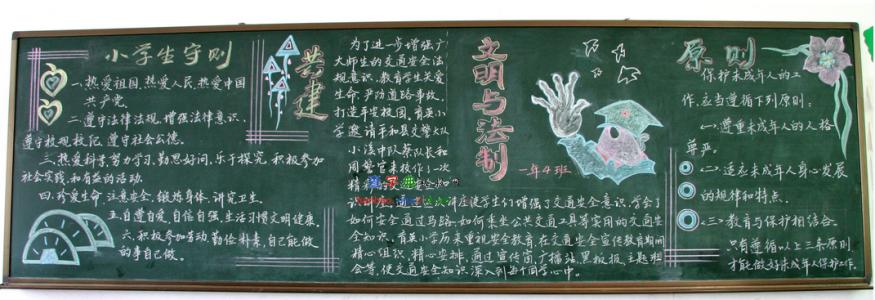 小学生守则
一、热爱祖国,热爱人民,热爱中国
共产党。
二、遵守法律法规,增强法律意识,
遵守校规校纪,遵守社会公德。
三、热爱科学,努力学习,勤思好问,乐于探究,积极参加
社会实践和有益的活动。
四、珍爱生命,注意安全,锻炼身体,讲究卫生。
五、自尊自爱,自信自强,生活习惯文明健康。
六、积极参加劳动,勤俭朴素,自己能做
的事自己做。
共建
为了进一步增强广
大师生的交通安全法
规意识,教育学生关爱
生命,严防道路事故,
打造平安校园,育英小
学邀请平和县交警大队
小溪中队蔡队长和
周警官来校作了一次
精彩
讲座使学生们增强了交通安全意识,学会了
如何安全通过马路,如何乘坐公共交通工具等实用的交通安
全知识。育英小学历来重视安全教育,在交通安全宣传教育期间
精心组织,精心安排,通过宣传窗,广播站,黑板报,主题班
会等,使交通安全知识深入到每个同学心中。
文明与法制
一年4班
原则
保护未成年人的工
作,应当遵循下列原则:
<一>尊重未成年人的人格
尊严。
<二>适应未成年人身心发展
的规律和特点。
<三>教育与保护相结合。
只有遵循以上三条原则
才能做好未成年人保护工作。